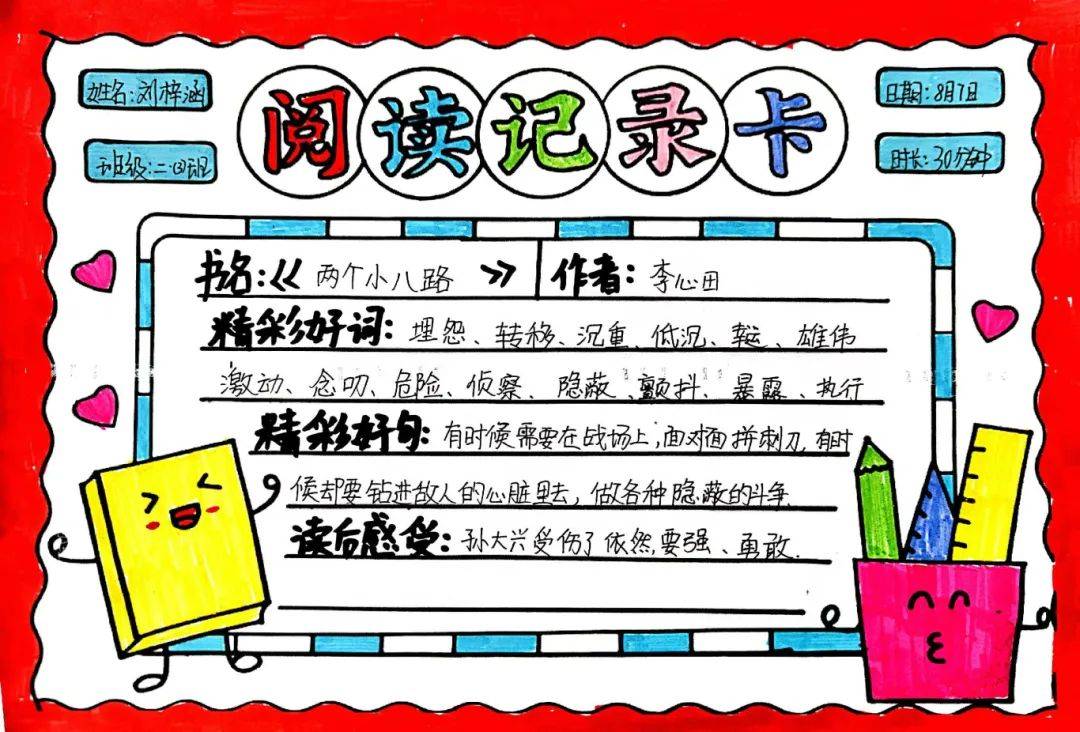 阅读记录卡
姓名:刘梓涵
日期:8月7日
班级:二(四)班
时长:30分钟
书名:《两个小八路》 作者:李心田
精彩好词:埋怨、转移、沉重、低沉、、雄伟
激动、念叨、危险、侦察、隐蔽、颤抖、暴露、执行
精彩好句:有时候需要在战场上,面对面拼刺刀,有时
候却要钻进敌人的心脏里去,做各种隐蔽的斗争.
读后感受:孙大兴受伤了依然,要强、勇敢.